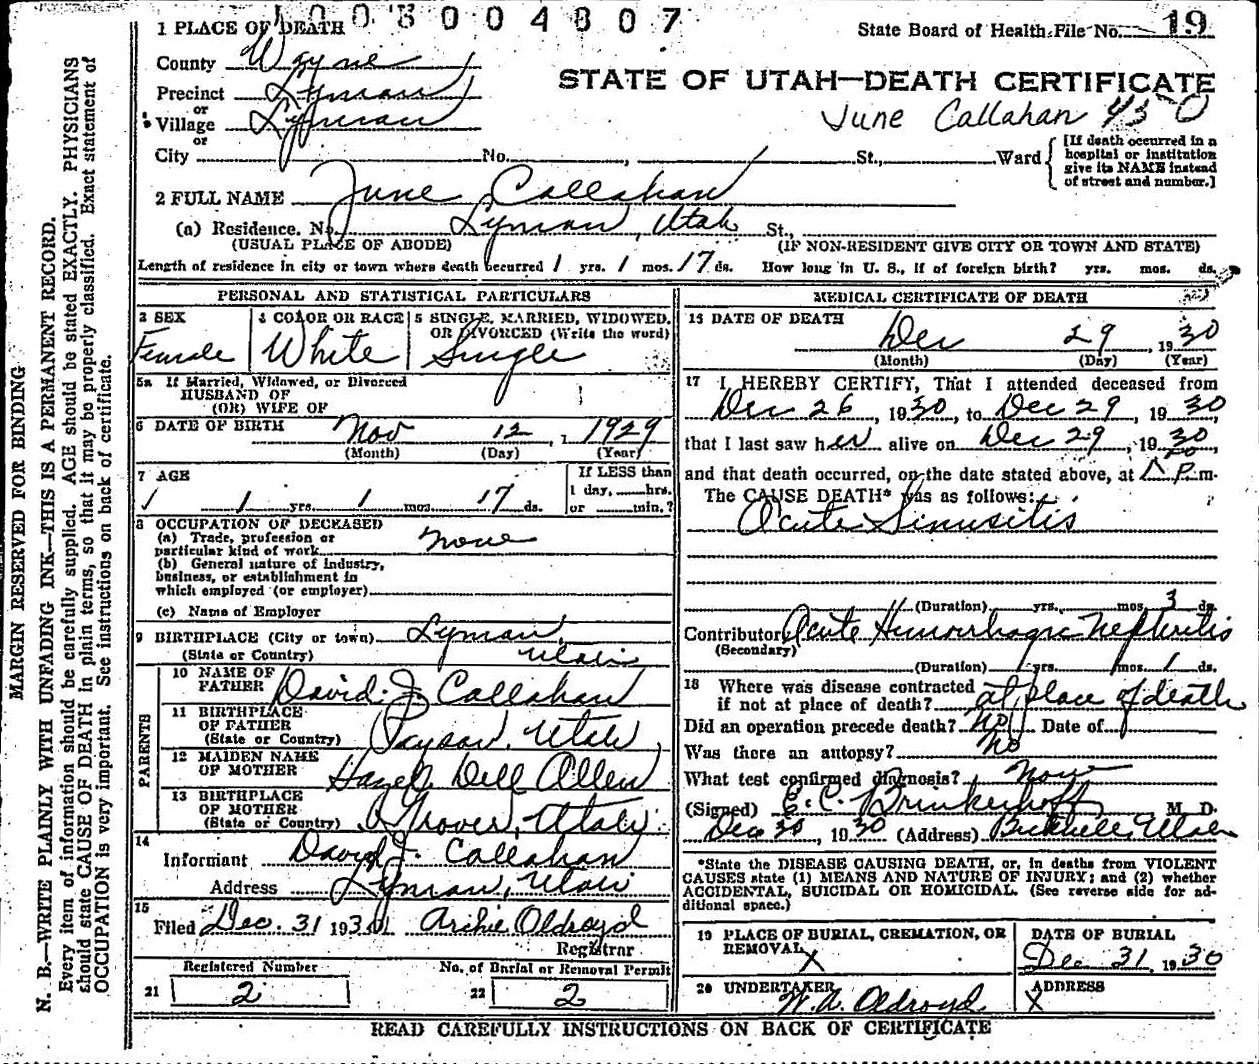 1003004807
1 PLACE OF DEATH
State Board of Health File No. 19
County Wayne
STATE OF UTAH—DEATH CERTIFICATE
Precinct Lyman
or
Village Lyman
June Callahan 430
or
City No. , St., Ward
[If death occurred in a hospital or institution give its NAME instead of street and number.]
2 FULL NAME June Callahan
(a) Residence. No. Lyman, Utah St.,
(USUAL PLACE OF ABODE) (IF NON-RESIDENT GIVE CITY OR TOWN AND STATE)
Length of residence in city or town where death occurred 1 yrs. 1 mos. 17 ds. How long in U. S., if of foreign birth? yrs. mos. ds.
PERSONAL AND STATISTICAL PARTICULARS
3 SEX
Female
4 COLOR OR RACE
White
5 SINGLE, MARRIED, WIDOWED, OR DIVORCED (Write the word)
Single
5a If Married, Widowed, or Divorced
HUSBAND OF
(OR) WIFE OF
6 DATE OF BIRTH Nov 12, 1929
(Month) (Day) (Year)
7 AGE
1 yrs. 1 mos. 17 ds.
If LESS than
1 day, hrs.
or min.?
8 OCCUPATION OF DECEASED
(a) Trade, profession or
particular kind of work None
(b) General nature of industry,
business, or establishment in
which employed (or employer)
(c) Name of Employer
9 BIRTHPLACE (City or town) Lyman,
(State or Country) Utah
PARENTS
10 NAME OF
FATHER David J. Callahan
11 BIRTHPLACE
OF FATHER
(State or Country) Payson, Utah
12 MAIDEN NAME
OF MOTHER Hazel Dell Allen
13 BIRTHPLACE
OF MOTHER
(State or Country) Grover, Utah
14
Informant David J. Callahan
Address Lyman, Utah
15
Filed Dec. 31 1930 Archie Oldroyd
Registrar
Registered Number No. of Burial or Removal Permit
21 2 22 2
MEDICAL CERTIFICATE OF DEATH
15 DATE OF DEATH
Dec 29, 1930
(Month) (Day) (Year)
17 I HEREBY CERTIFY, That I attended deceased from
Dec 26, 1930, to Dec 29, 1930
that I last saw her alive on Dec 29, 1930
and that death occurred, on the date stated above, at P.m.
The CAUSE DEATH* was as follows:
Acute Sinusitis
(Duration) yrs. mos. 3 ds.
Contributor Acute Hemorrhagic Nephritis
(Secondary)
(Duration) yrs. mos. 1 ds.
18 Where was disease contracted
if not at place of death? at place of death
Did an operation precede death? No Date of
Was there an autopsy? No
What test confirmed diagnosis?
(Signed) E. C. Brinkerhoff M. D.
Dec 30, 1930 (Address) Bicknell, Utah
*State the DISEASE CAUSING DEATH, or, in deaths from VIOLENT
CAUSES state (1) MEANS AND NATURE OF INJURY; and (2) whether
ACCIDENTAL, SUICIDAL OR HOMICIDAL. (See reverse side for ad-
ditional space.)
19 PLACE OF BURIAL, CREMATION, OR
REMOVAL X
DATE OF BURIAL
Dec 31, 1930
20 UNDERTAKER
W. A. Oldroyd
ADDRESS
X
READ CAREFULLY INSTRUCTIONS ON BACK OF CERTIFICATE
MARGIN RESERVED FOR BINDING
N. B.—WRITE PLAINLY WITH UNFADING INK—THIS IS A PERMANENT RECORD.
Every item of information should be carefully supplied. AGE should be stated EXACTLY. PHYSICIANS
should state CAUSE OF DEATH in plain terms, so that it may be properly classified. Exact statement of
OCCUPATION is very important. See instructions on back of certificate.